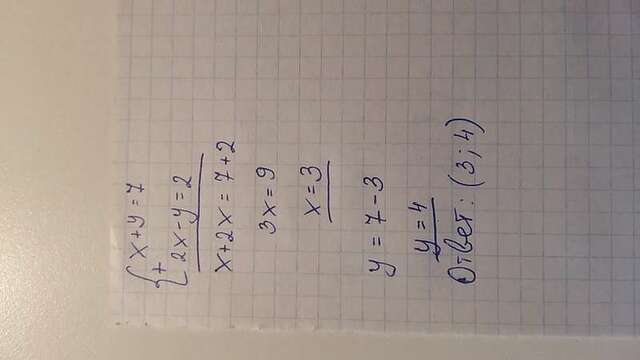 { x+y=7
+
2x-y=2
x+2x=7+2
3x=9
x=3
y=7-3
y=4
Ответ: (3; 4)